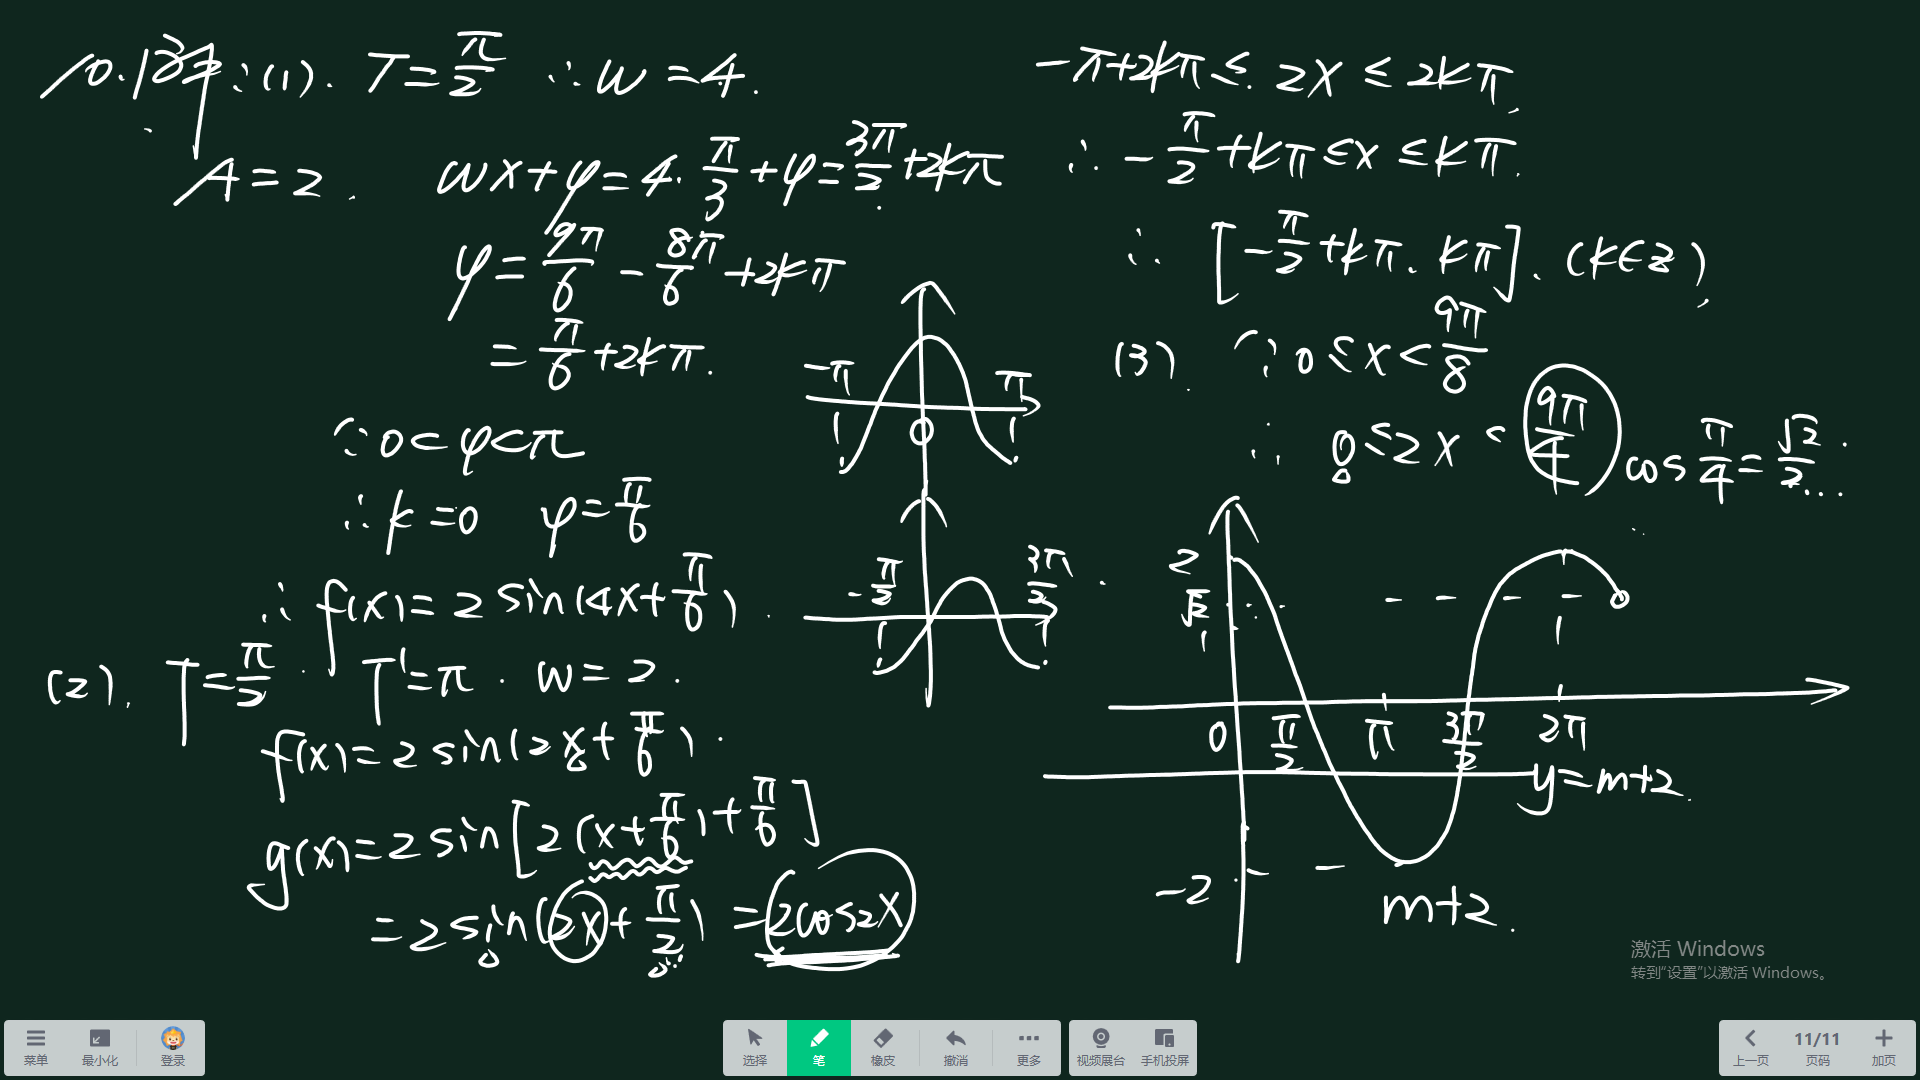 10.解:(1). T=π/2 ∴w=4.
A=2. wx+φ=4·π/3+φ=3π/2+2kπ
φ=9π/6-8π/6+2kπ
=π/6+2kπ.
∵0<φ<π
∴k=0 φ=π/6
∴f(x)=2sin(4x+π/6).
(2). T=π/2. T'=π. w=2.
f(x)=2sin(2x+π/6).
g(x)=2sin[2(x+π/6)+π/6]
=2sin(2x+π/2)=2cos2x
-π π
0
-π/2 3π/2
-π+2kπ≤2x≤2kπ,
∴-π/2+kπ≤x≤kπ.
∴[-π/2+kπ, kπ].(k∈z),
(3). ∵0≤x<9π/8
∴0≤2x<9π/4 cosπ/4=√2/2...
2
√2
1
0 π/2 π 3π/2 2π
y=m+2.
-2
m+2.
激活 Windows
转到“设置”以激活 Windows。
菜单 最小化 登录 选择 笔 橡皮 撤消 更多 视频展台 手机投屏 上一页 11/11 页码 加页